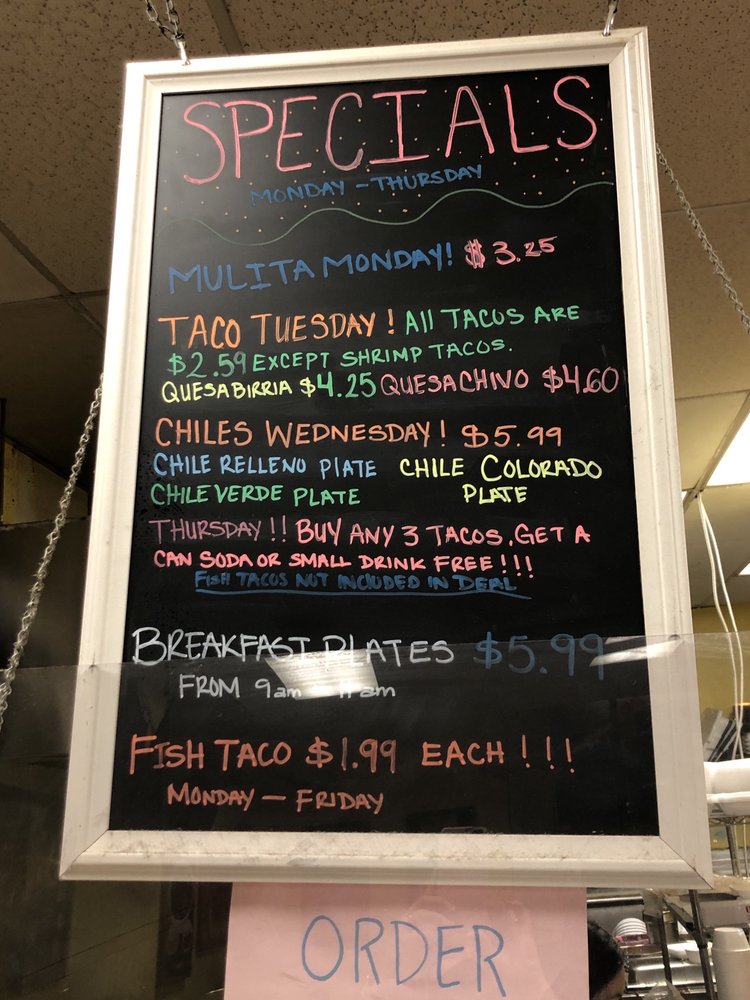 SPECIALS
MONDAY - THURSDAY
MULITA MONDAY! $3.25
TACO TUESDAY! All TACOS ARE
$2.59 EXCEPT SHRIMP TACOS.
QUESABIRRIA $4.25 QUESACHIVO $4.60
CHILES WEDNESDAY! $5.99
CHILE RELLENO PlATE CHILE COLORADO
CHILE VERDE PLATE PLATE
THURSDAY!! BUY ANY 3 TACOS, GET A
CAN SODA OR SMALL DRINK FREE!!!
FISH TACOS NOT INCLUDED IN DEAL
BREAKFAST PLATES $5.99
FROM 9am - 11am
FISH TACO $1.99 EACH!!!
MONDAY - FRIDAY
ORDER